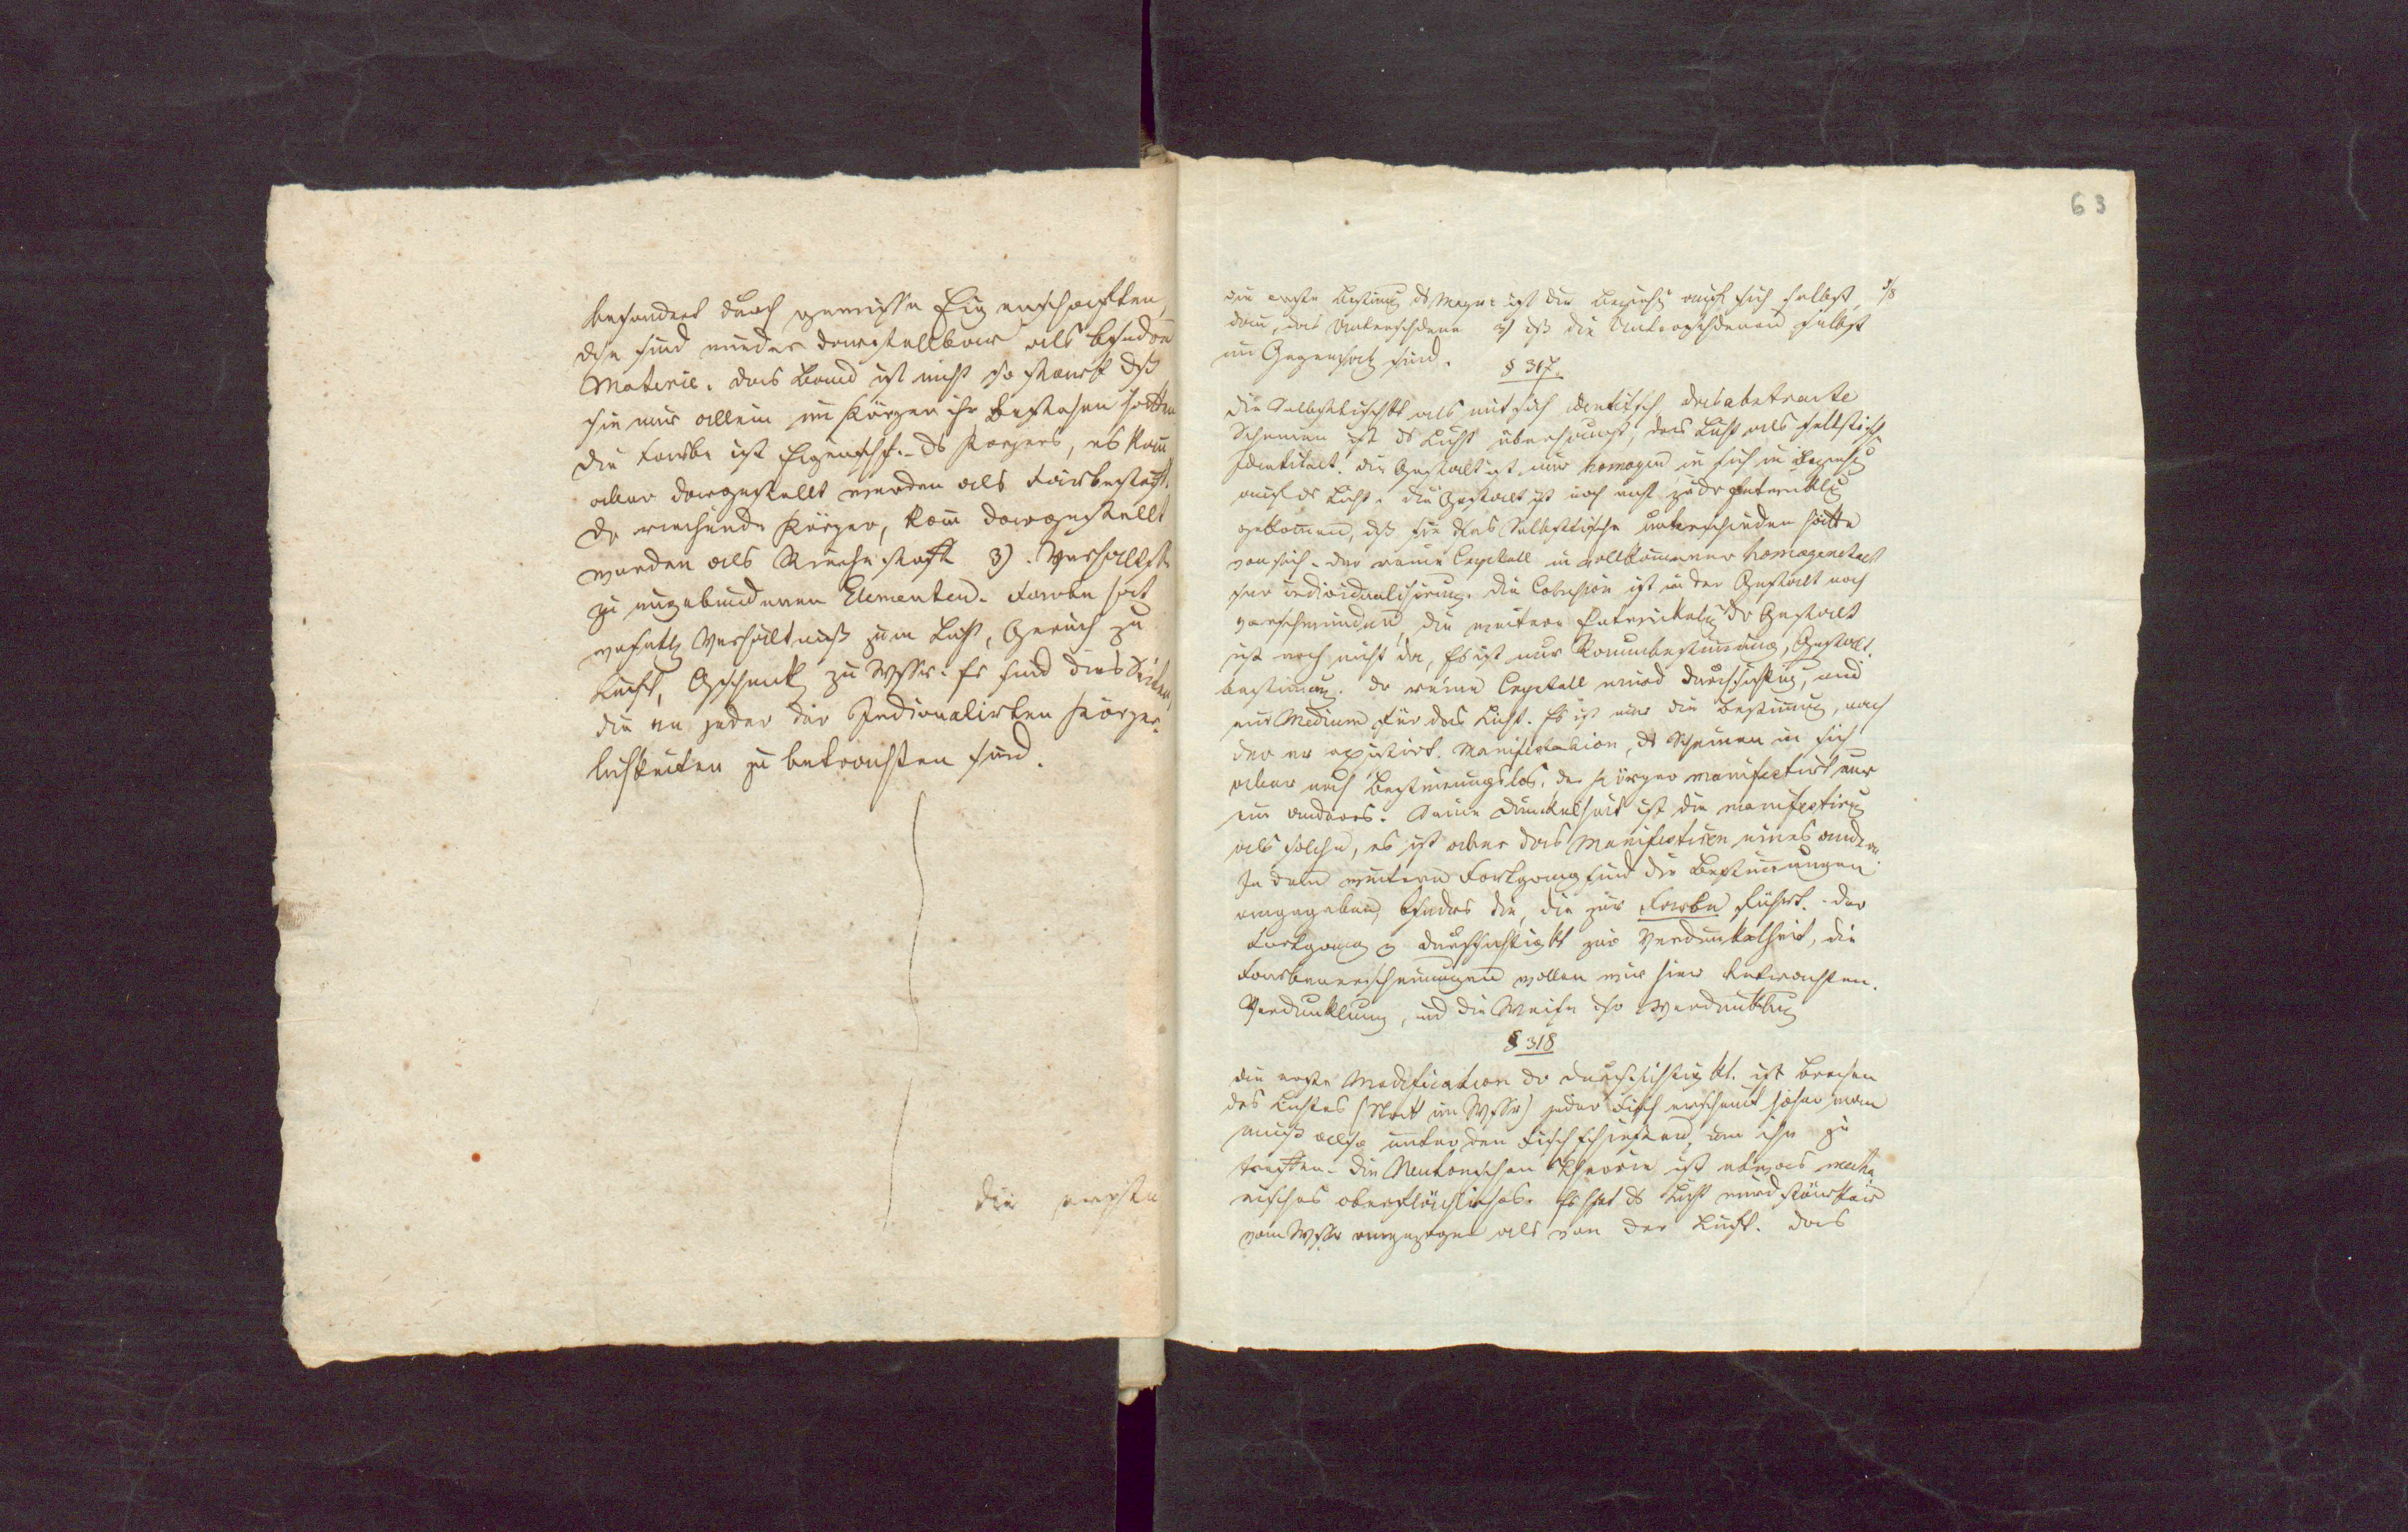 besondert durch gewisse Eigenschaften,
die sind wieder darstellbar als besondre
Materie. das Band ist nicht so stark dß
sie nur allein im Körper ihr Bestehen hätten
die Farbe ist Eigenschft. ds Körpers, es kann
aber dargestellt werden als Farbestoff.
Dr riechende Körper, kann dargestellt
werden als Riechestoff 3). Verhältße
zu ungebundenen Elementen. Farbe hat
wesentl Verhältniß zum Licht, Geruch zu
Luft, Gschmack zu Wssr. Es sind dies Seiten,
die an jeder der Individualisirten Körper-
lichkeiten zu betrachten sind.
die erste
63
die erste Bestimg ds ist die Beziehg auf sich selbst, 3/8
dann, das Unterschiedene 3) dß die Unterschiedenen selbst
im Gegensatz sind.
§ 317.
die Selbstischkt als mit sich identisch, das abstracte
Scheinen ist ds Licht überhaupt, das Licht als selbstische
Identitaet. die Gestalt ist nur homogen in sich in Beziehg
auf ds Licht. die Gestalt ist noch nicht zu dr Entwicklg
gekommen, dß sie das Selbstische unterschieden hätte
von sich. der reine Crystall in vollkommener homogeneitaet
sr individualisirung. die Cohesion ist in der Gestalt noch
verschwunden, die weitere Entwickelg dr Gestalt
ist noch nicht da, Es ist nur Raumbestimmung, Gestalt-
bestimmg. dr reine Crystall wird durchsichtig, und
ein Medium für das Licht. Es ist nur die Bestimmg, nach
der er existirt. Manifestation, ds Scheinen in sich
aber noch Bestimmungslos. der Körper manifestirt nur
ein anderes. Seine Dunkelheit ist die manifestirg
als solche, es ist aber das Manifestiren eines andern.
In dem weitern Fortgang sind die Bestimmungen
angegeben, bsnders die, die zur Farbe führt. der
Fortgang v durchsichtigkt zur Verdunkelheit, die
Farbenerscheinungen wollen wir hier betrachten.
Verdunklung, und die Weise dsr Verdunklug
§ 318
die erste Modification dr durchsichtigkt. ist brechen
des Lichtes (Statt im Wssr) jeder Fisch erscheint höher man
muß also unter den Fisch schießen, um ihn zu
treffen. die Neutonschen Theorie ist etwas mecha
nisches oberflächliches. Es hßt ds Licht wird stärker
vom Wssr angezogen als von der Luft. das